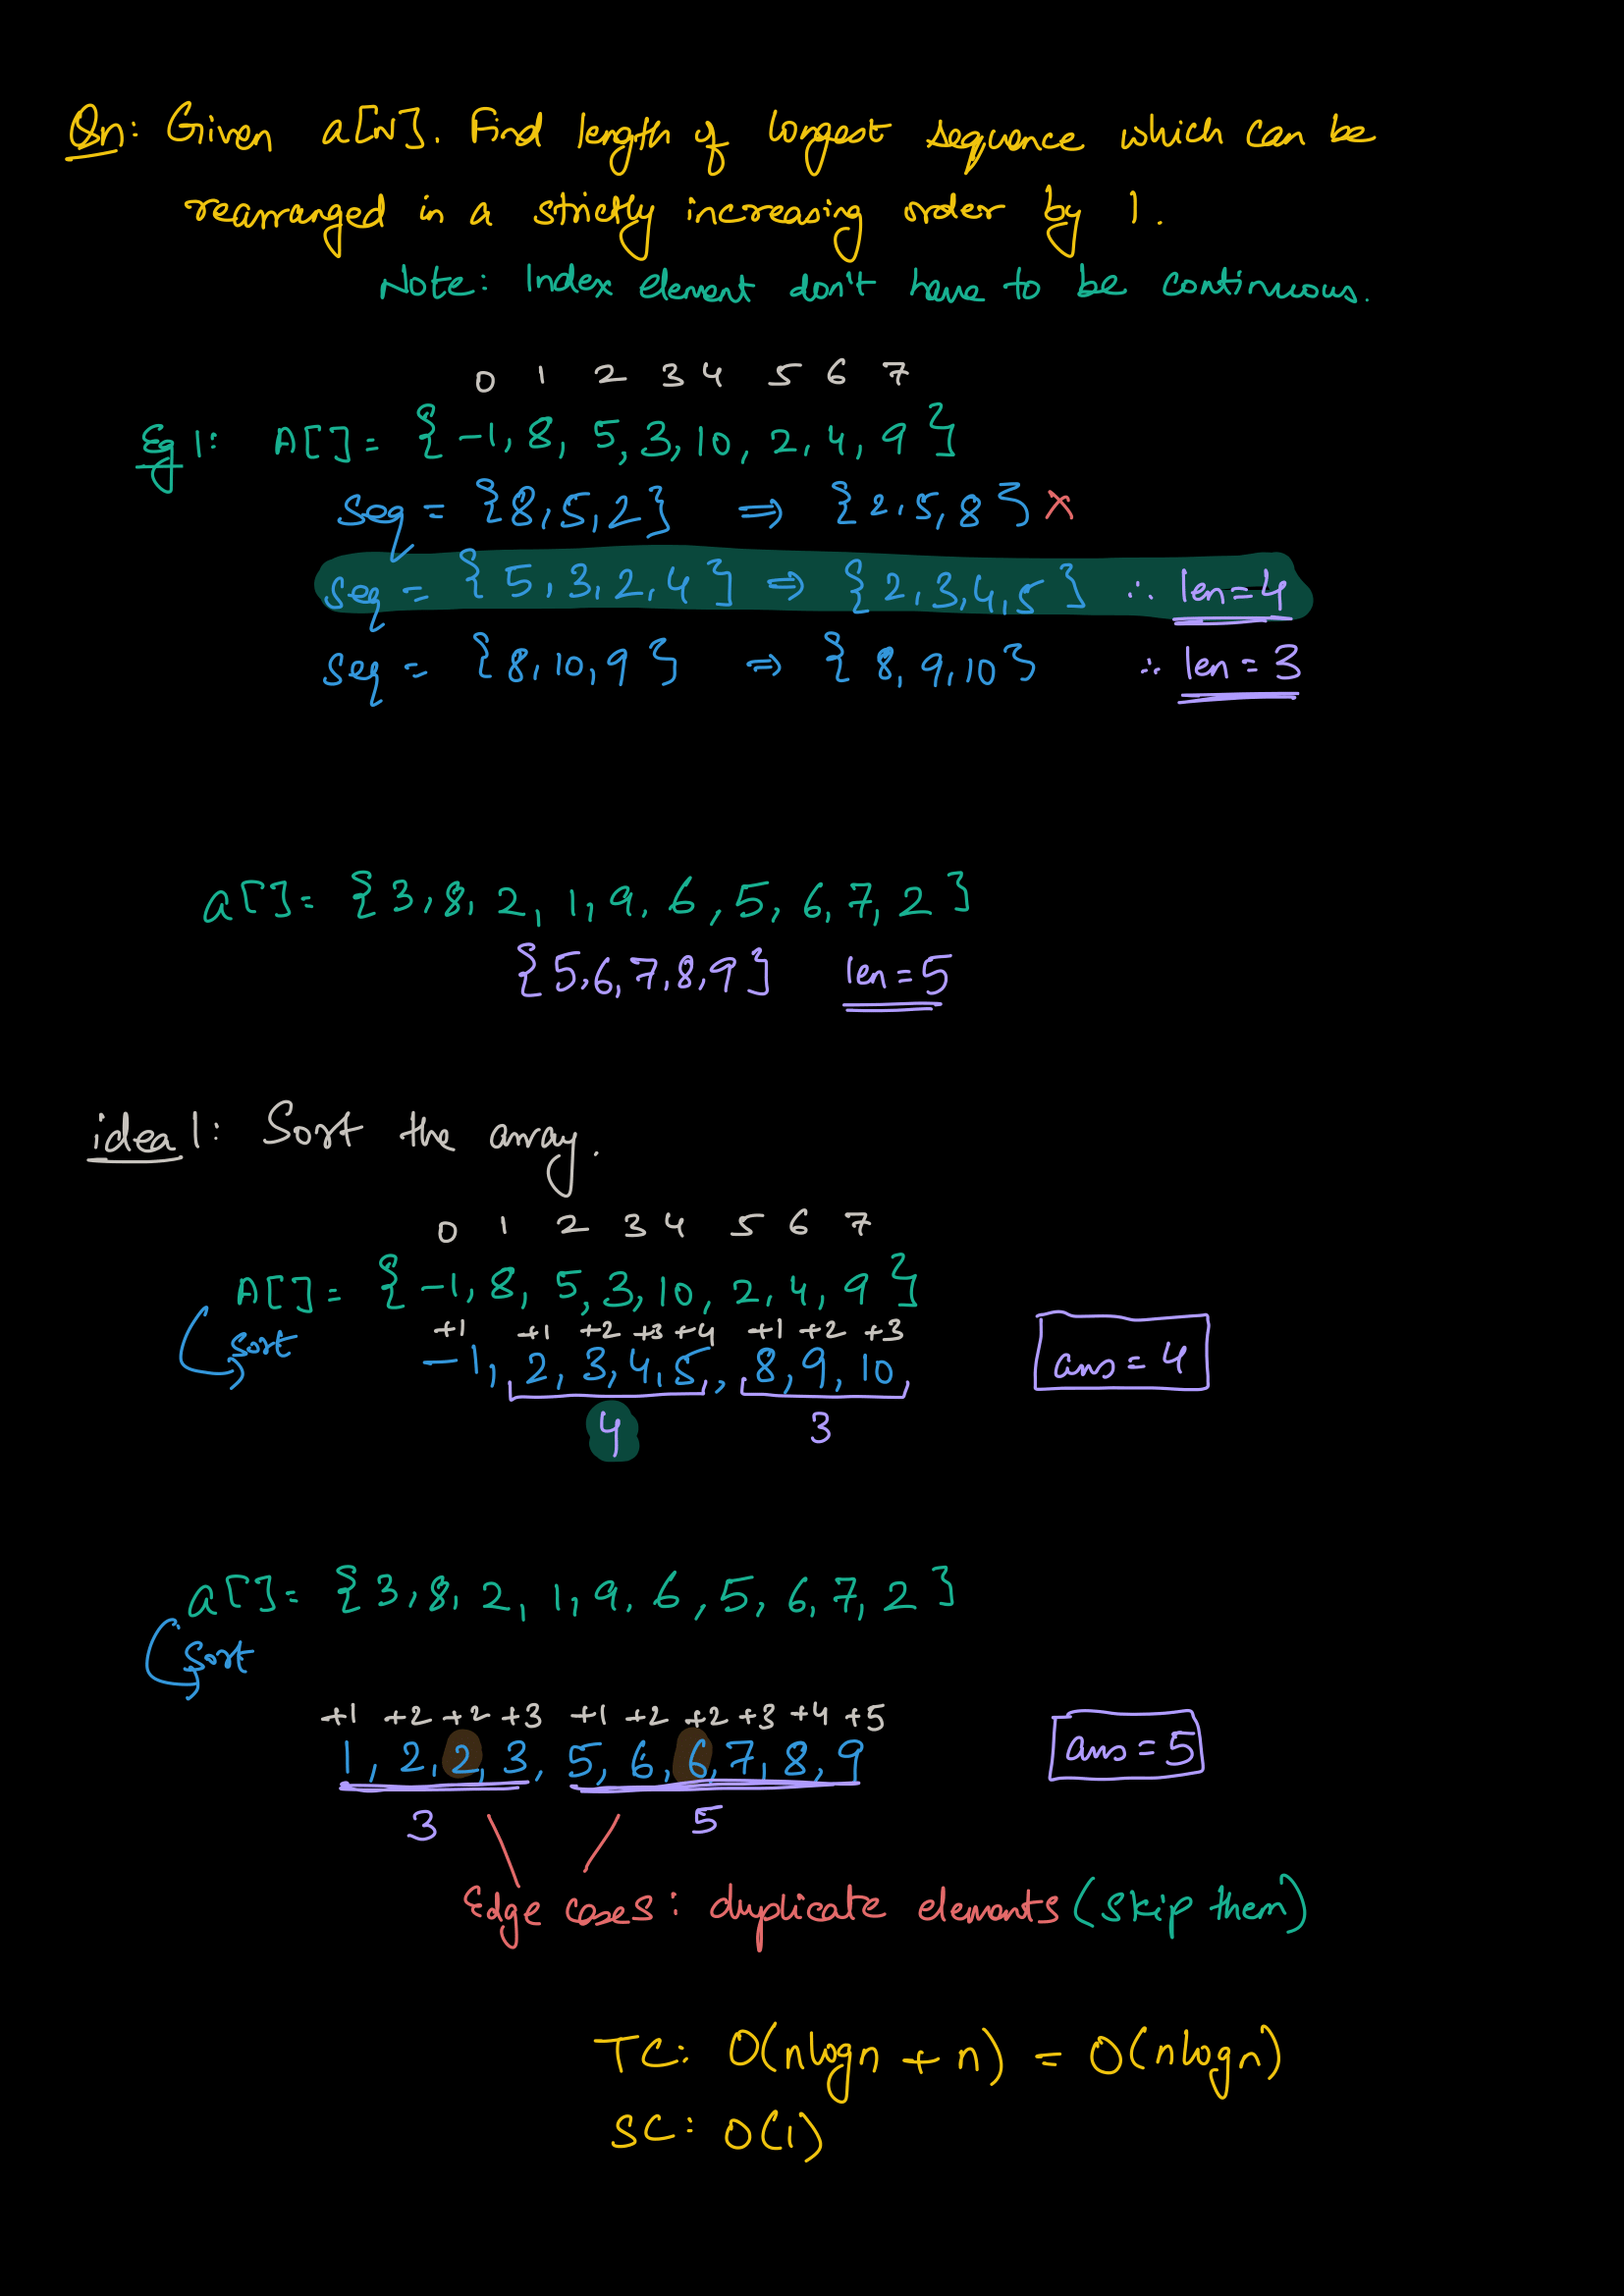 Qn: Given a[N]. Find length of longest sequence which can be
rearranged in a strictly increasing order by 1.
Note: Index element don't have to be continuous.
0 1 2 3 4 5 6 7
Eg 1: A[] = { -1, 8, 5, 3, 10, 2, 4, 9 }
seq = {8, 5, 2} ⇒ {2, 5, 8} ×
seq = {5, 3, 2, 4} ⇒ {2, 3, 4, 5} ∴ len = 4
seq = {8, 10, 9} ⇒ {8, 9, 10} ∴ len = 3
a[] = {3, 8, 2, 1, 9, 6, 5, 6, 7, 2}
{5, 6, 7, 8, 9} len = 5
idea 1: Sort the array.
0 1 2 3 4 5 6 7
A[] = { -1, 8, 5, 3, 10, 2, 4, 9 }
sort +1 +1 +2 +3 +4 +1 +2 +3
-1, 2, 3, 4, 5, , 8, 9, 10, ans = 4
4 3
a[] = {3, 8, 2, 1, 9, 6, 5, 6, 7, 2}
sort
+1 +2 +2 +3 +1 +2 +2 +3 +4 +5
1, 2, 2, 3, 5, 6, 6, 7, 8, 9 ans = 5
3 5
Edge cases: duplicate elements (skip them)
TC: O(nlogn + n) = O(nlogn)
SC: O(1)